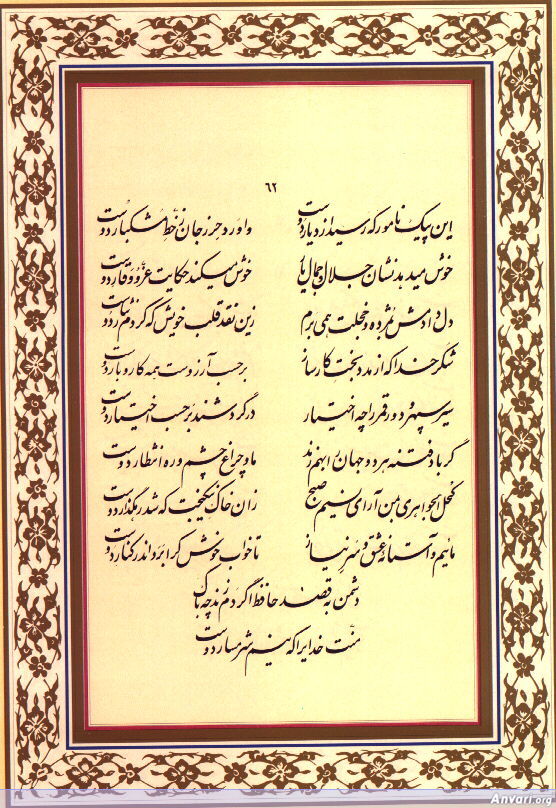 ۶۲
این پیک نامور که رسید از دیار دوست وآورد حرز جان ز خط مشکبار دوست
خوش میدهد نشان جلال و جمال یار خوش میکند حکایت عز و وقار دوست
دل دادمش بمژده و خجلت همی برم زین نقد قلب خویش که کردم نثار دوست
شکر خدا که از مدد بخت کارساز بر حسب آرزوست همه کار و بار دوست
سیر سپهر و دور قمر را چه اختیار در گردشند بر حسب اختیار دوست
گر باد فتنه هر دو جهان را بهم زند ما و چراغ چشم و ره انتظار دوست
کحل الجواهری بمن آر ای نسیم صبح زان خاک نیکبخت که شد رهگذار دوست
مائیم و آستانه عشق و سر نیاز تا خواب خوش کرا برد اندر کنار دوست
دشمن به قصد حافظ اگر دم زند چه باک
منت خدایرا که نیم شرمسار دوست
Anvari.org